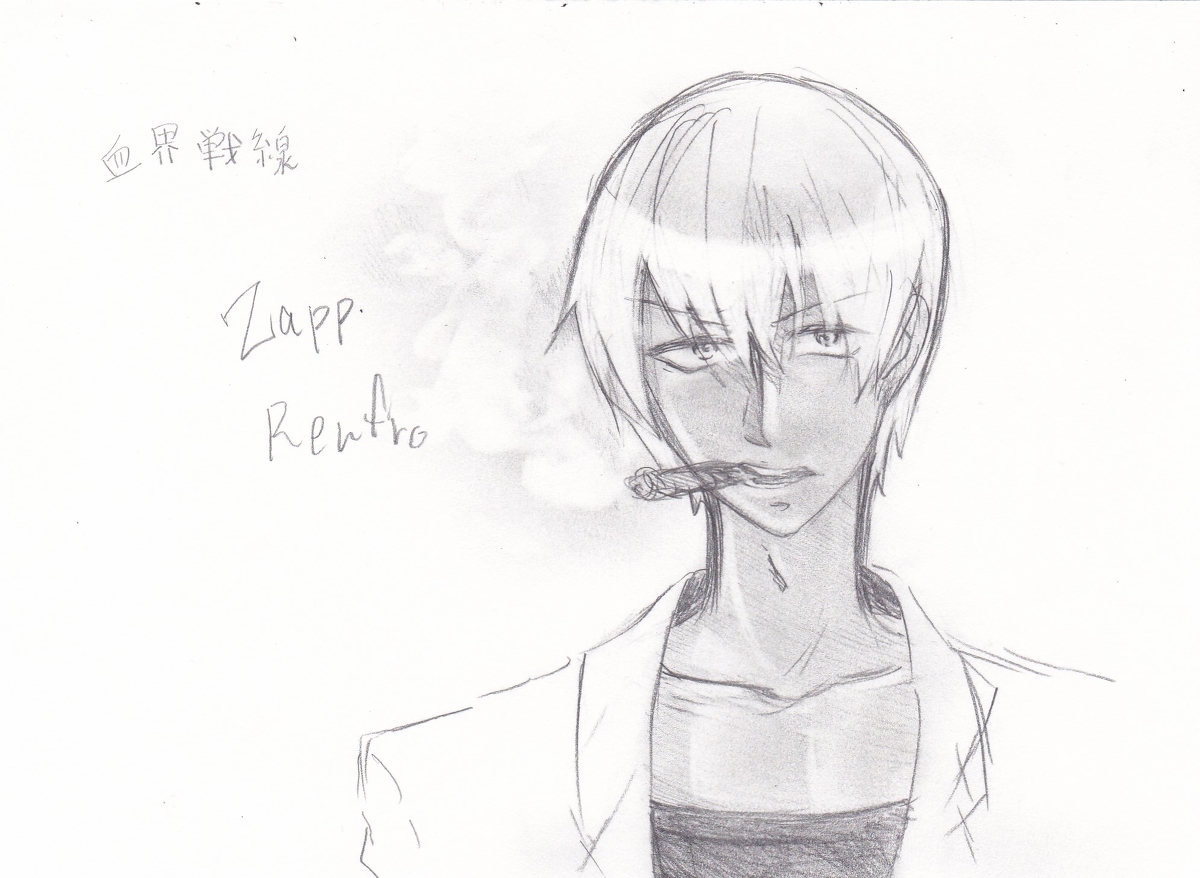 血界戦線
Zapp.
Renfro